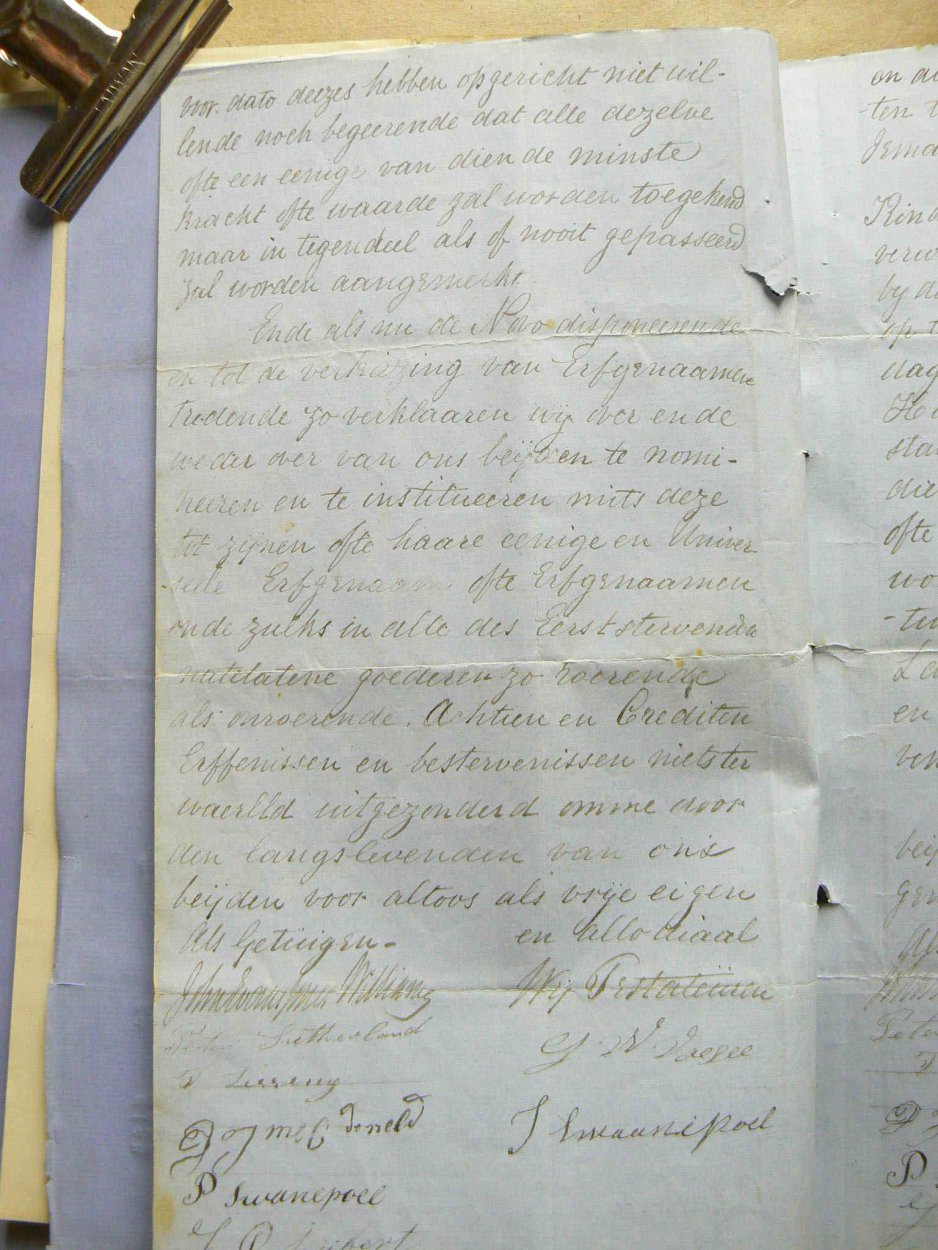 TAIWAN
voor dato deezes hebben opgericht niet wil-
lende noch begeerende dat alle dezelve
ofte een eenige van dien de minste
kracht ofte waarde zal worden toegekend
maar in tegendeel als of nooit gepasseerd
zal worden aangemerkt
Ende als nu de Novo disponeerende
en tot de verkiezing van Erfgenaamen
tredende zo verklaaren wij over ende
weder over van ons beijden te nomi-
neeren en te institueeren mits deze
tot zijnen ofte haare eenige en Univer-
-seele Erfgenaam ofte Erfgenaamen
ende zulks in alle des Eerststervenden
natelatene goederen zo roerende
als onroerende. Actien en Crediten
Erffenissen en bestervenissen niets ter
waerlld uitgezonderd omme door
den langslevenden van ons
beijden voor altoos als vrije eigen
en allodiaal
Als Getuigen-
Wij Testateuren
Williams
Peter Sutherland
J Swaanepoel
P Swanepoel
on
-ten
Kind
dag
die
ofte
wo
en